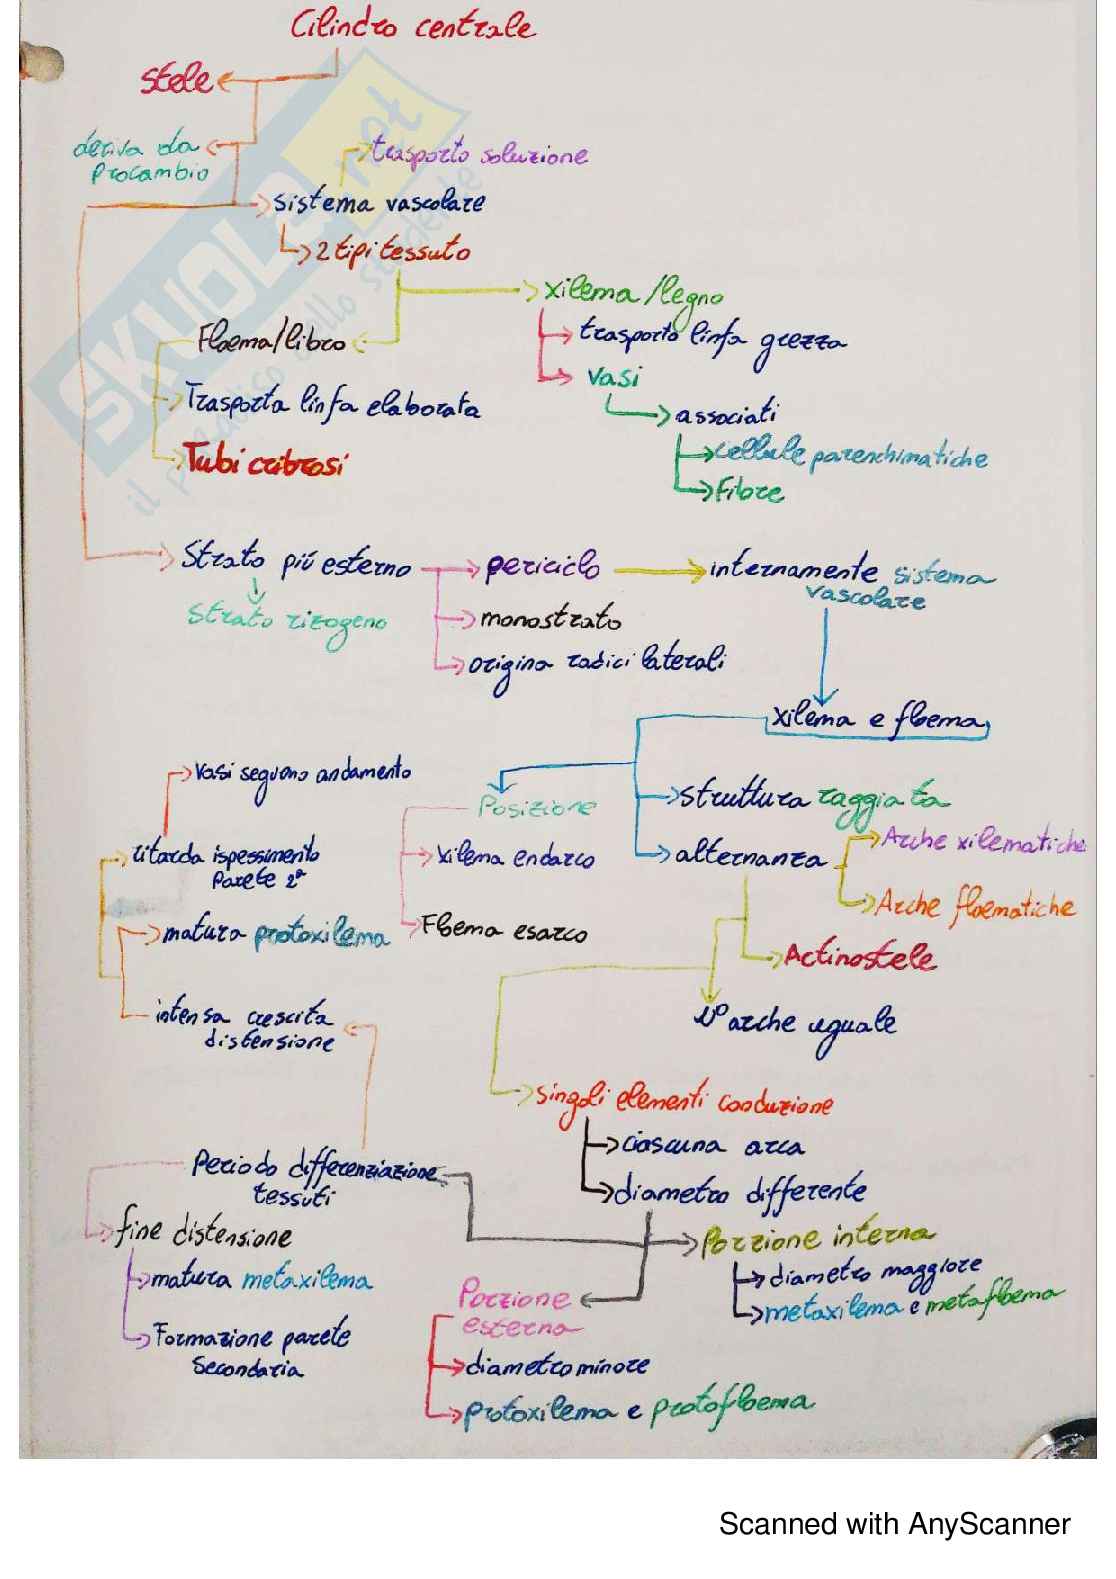 Cilindro centrale
stele
deriva da
procambio
trasporto soluzione
sistema vascolare
2 tipi tessuto
xilema/legno
Floema/libro
trasporto linfa grezza
vasi
Trasporta linfa elaborata
associati
Tubi cribrosi
cellule parenchimatiche
Fibre
Strato più esterno
periciclo
internamente sistema
vascolare
Strato rizogeno
monostrato
origina radici laterali
xilema e floema
vasi seguono andamento
Posizione
struttura raggiata
Arche xilematiche
ritarda ispessimento
Parete 2ª
xilema endarco
alternanza
Arche floematiche
matura protoxilema
Floema esarco
Actinostele
intensa crescita
distensione
N° arche uguale
singoli elementi conduzione
ciascuna arca
Periodo differenziazione
tessuti
diametro differente
fine distensione
Porzione interna
matura metaxilema
diametro maggiore
Porzione
esterna
metaxilema e metafloema
Formazione parete
Secondaria
diametro minore
protoxilema e protofloema
SKUOLA.net
il paradiso dello studente
Scanned with AnyScanner